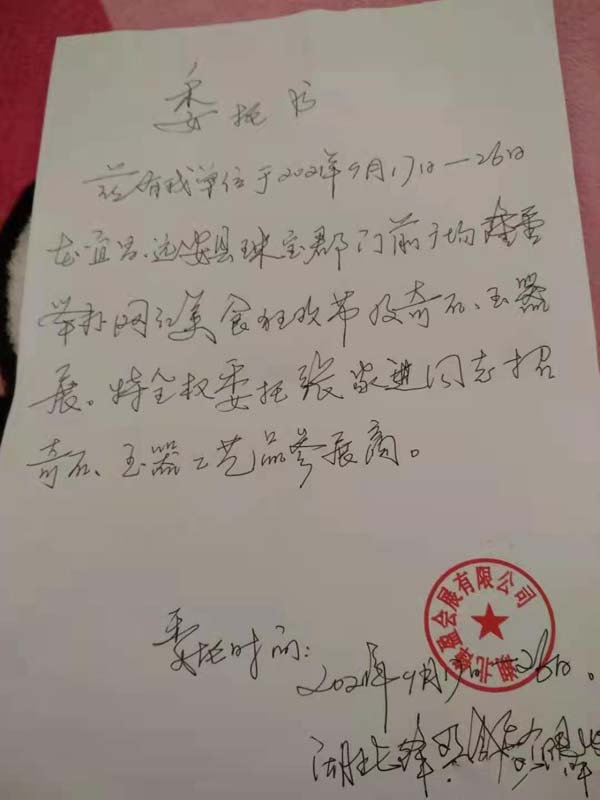 委托书
兹有我单位于2021年9月17日—26日
在宜昌.远安县珠宝郡门前广场隆重
举办网红美食狂欢节及奇石、玉器
展。特全权委托张家进同志招
奇石、玉器工艺品参展商。
会展有限公司
委托时间:
2021年9月17日—26日.
湖北